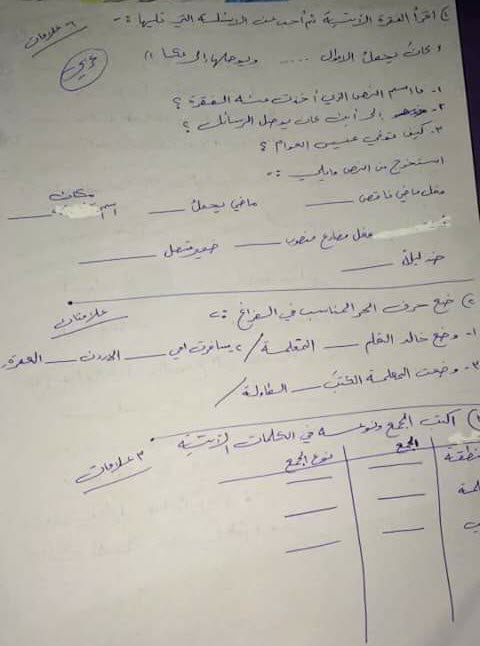 ١) اقرأ الفقرة الآتية ثم أجب عن الأسئلة التي تليها :-
٦ علامات
وكان يحمل الأول ...... ويوصلها إلى
عربي
١- ما اسم النص الذي أخذت منه الفقرة ؟
٢- إلى أين كان يوصل الرسائل ؟
٣- كيف توفي عيسى العوام ؟
استخرج من النص ما يلي :-
فعل ماضي ناقص ____ ماضي يحمل ____ اسم مكان ____
فعل مضارع منصوب ____ ضمير متصل ____
ضد ليلاً ____
٢) ضع حرف الجر المناسب في الفراغ :-
علامتان
١- وضع خالد القلم ____ المقلمة / ٢- سافرت أمي ____ الأردن ____ العقبة
٣- وضعت المعلمة الكتب ____ الطاولة /
اكتب الجمع ونوعه في الكلمات الآتية
٣ علامات
الجمع نوع الجمع